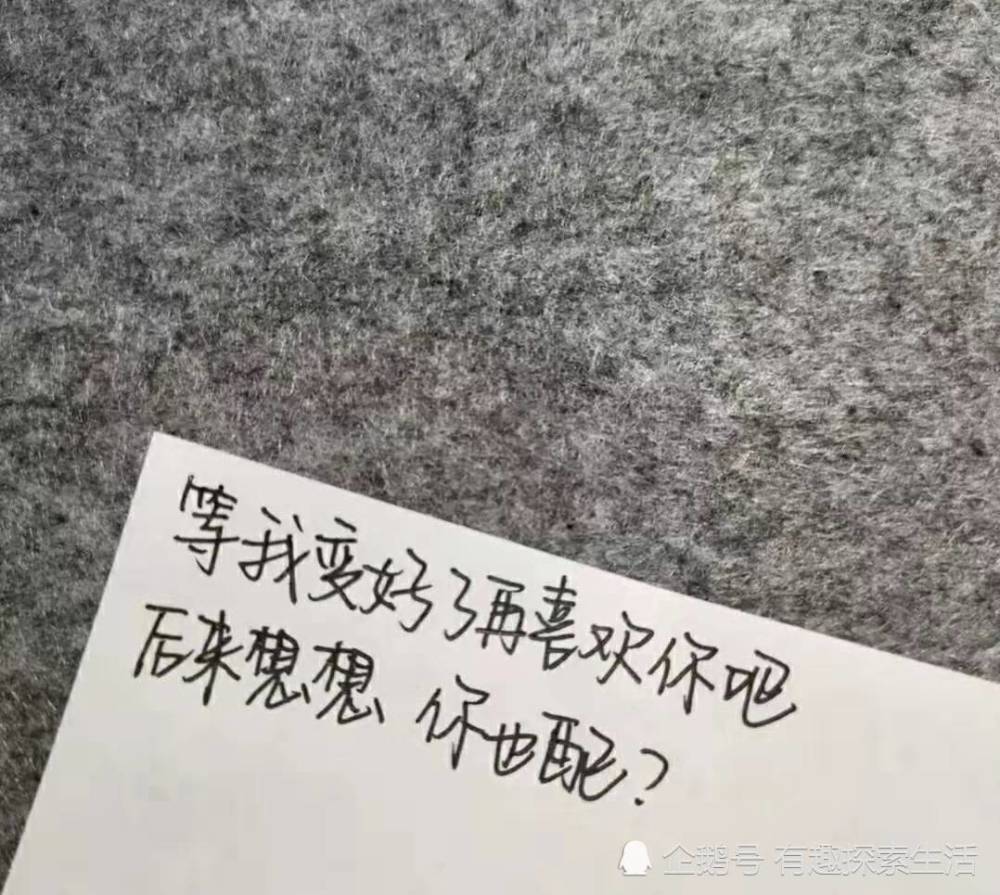 等我变好了再喜欢你吧
后来想想 你也配?
企鹅号 有趣探索生活